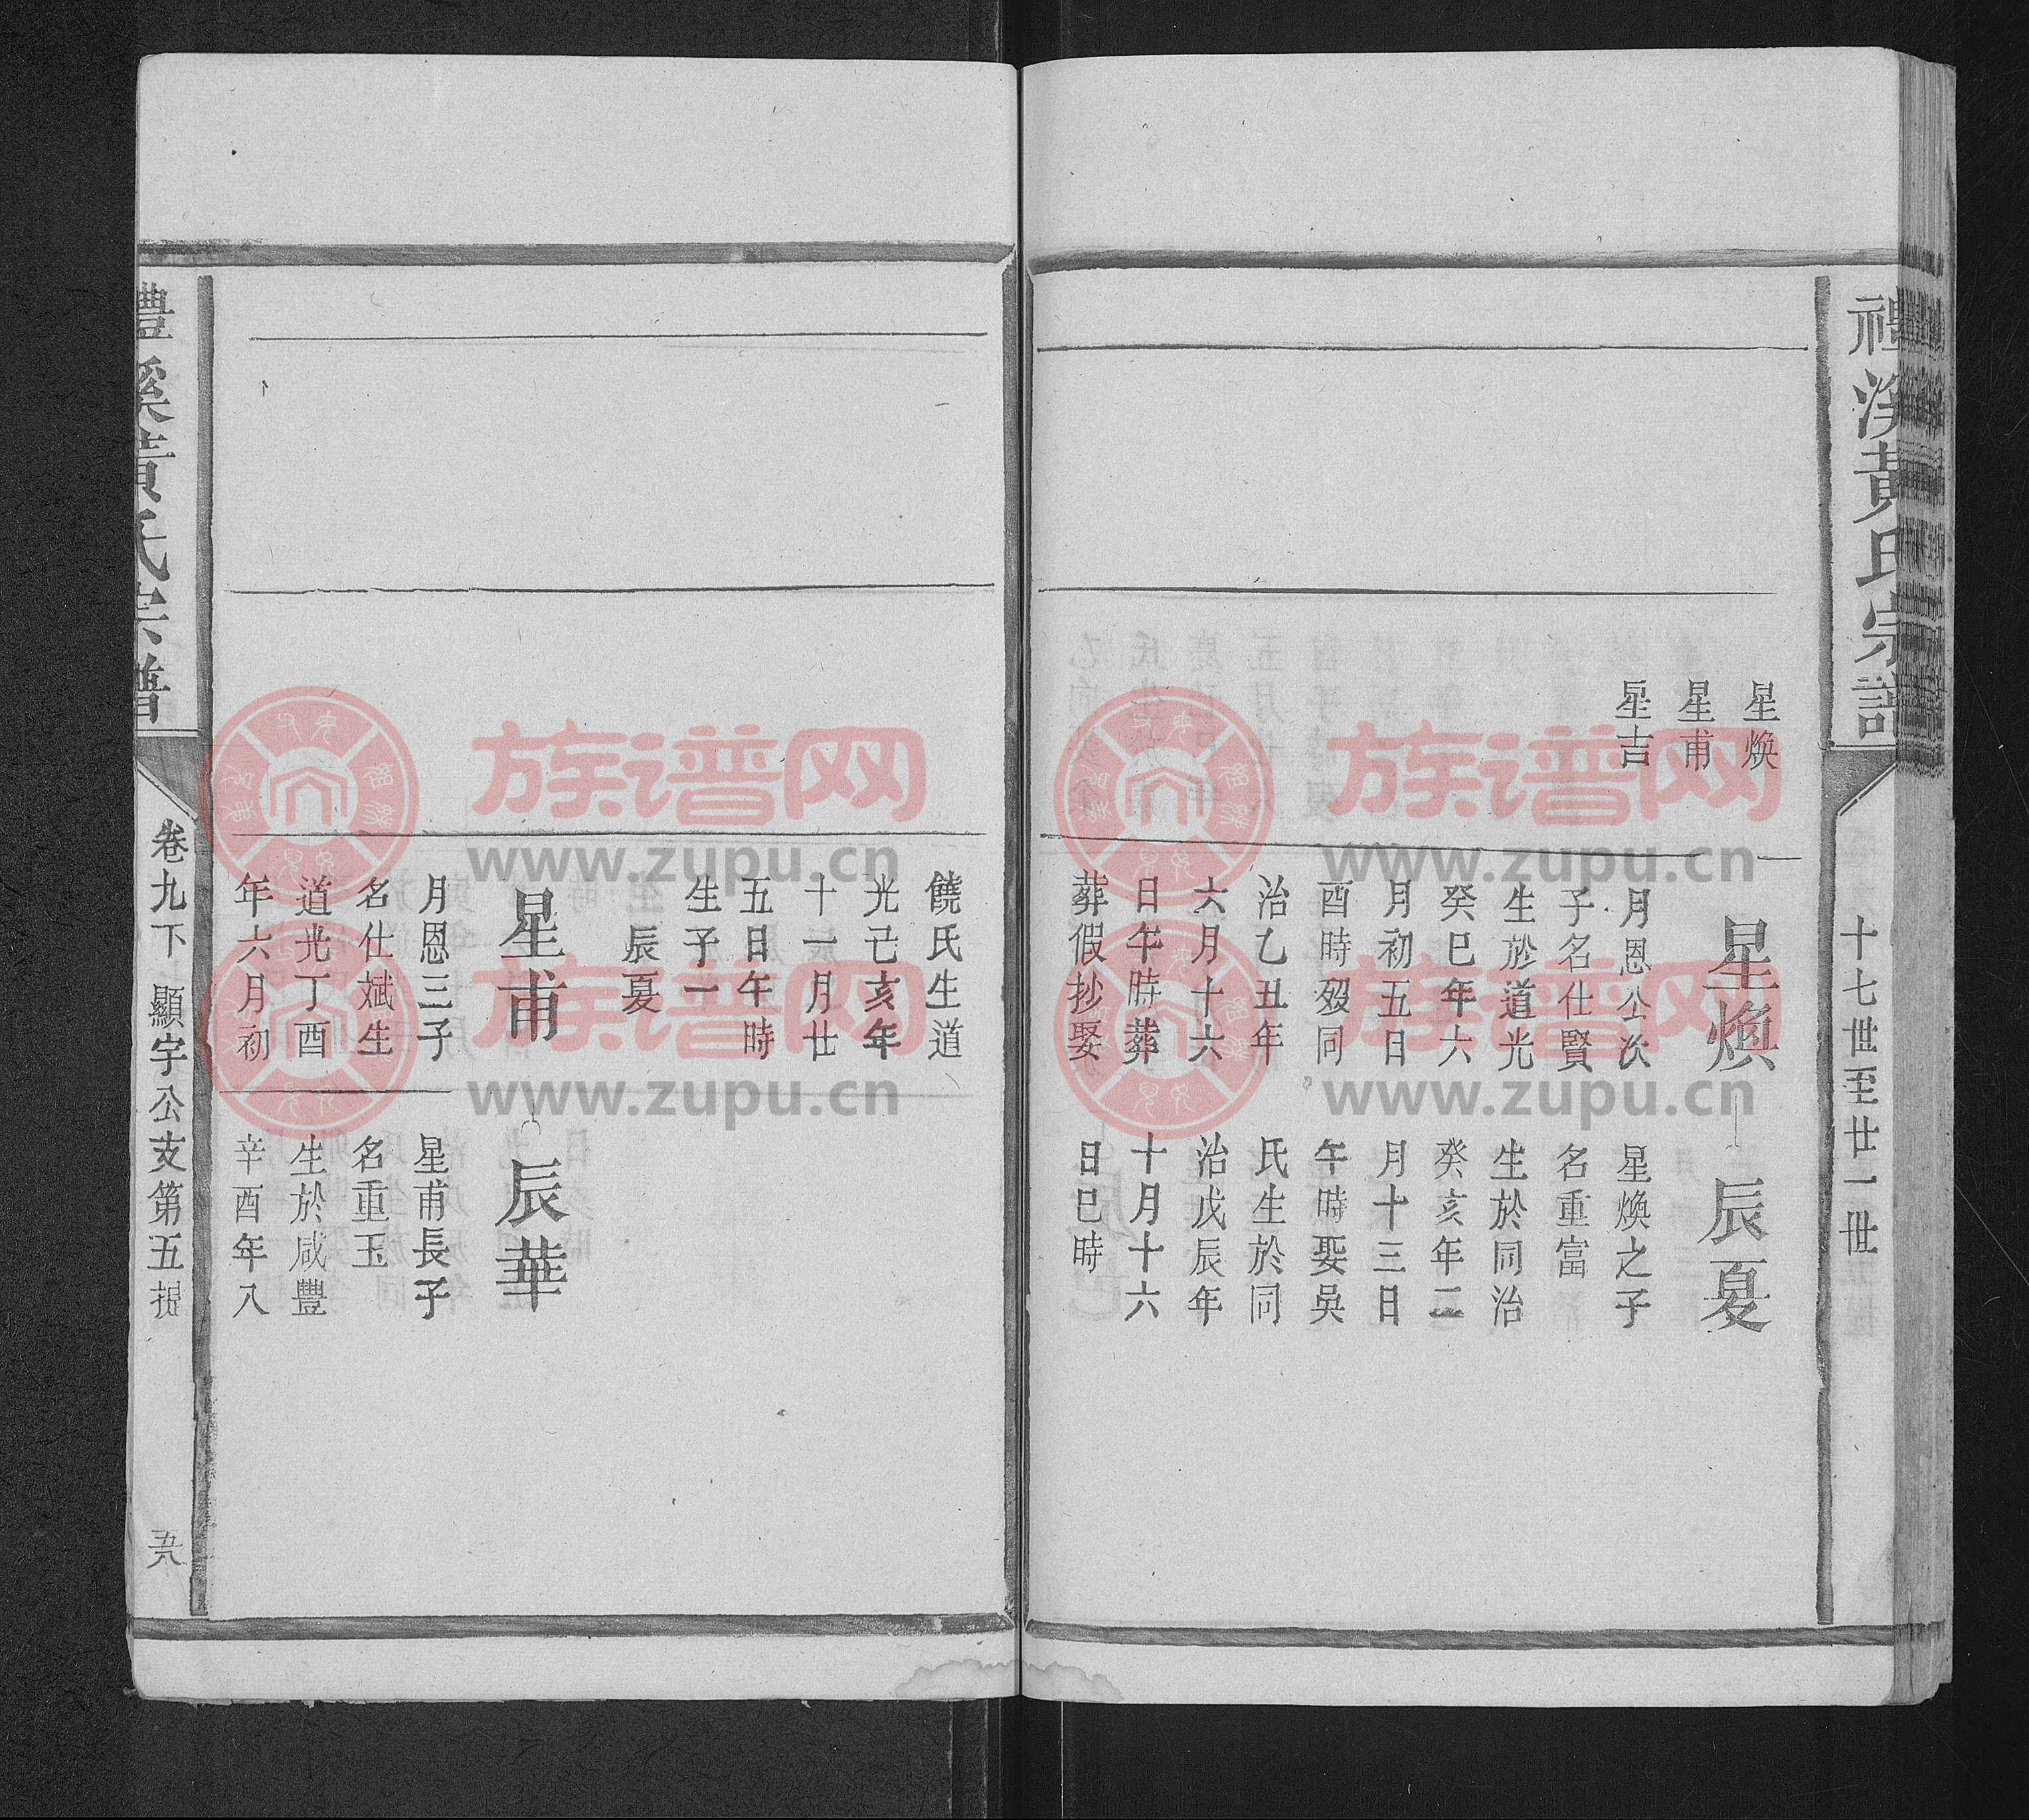 禮溪黃氏宗譜
十七世至廿一世
星煥
星甫
星吉
星煥
月恩公次
子名仕賢
生於道光
癸巳年六
月初五日
酉時歿同
治乙丑年
六月十六
日午時葬
葬假抄娶
辰夏
星煥之子
名重富
生於同治
癸亥年二
月十三日
午時娶吳
氏生於同
治戊辰年
十月十六
日巳時
饒氏生道
光己亥年
十一月廿
五日午時
生子一
辰夏
星甫
月恩三子
名仕斌生
道光丁酉
年六月初
辰華
星甫長子
名重玉
生於咸豐
辛酉年八
禮溪黃氏宗譜
卷九下 顯宇公支第五提
族谱网
www.zupu.cn
www.zupu.cn
族谱网
www.zupu.cn
www.zupu.cn